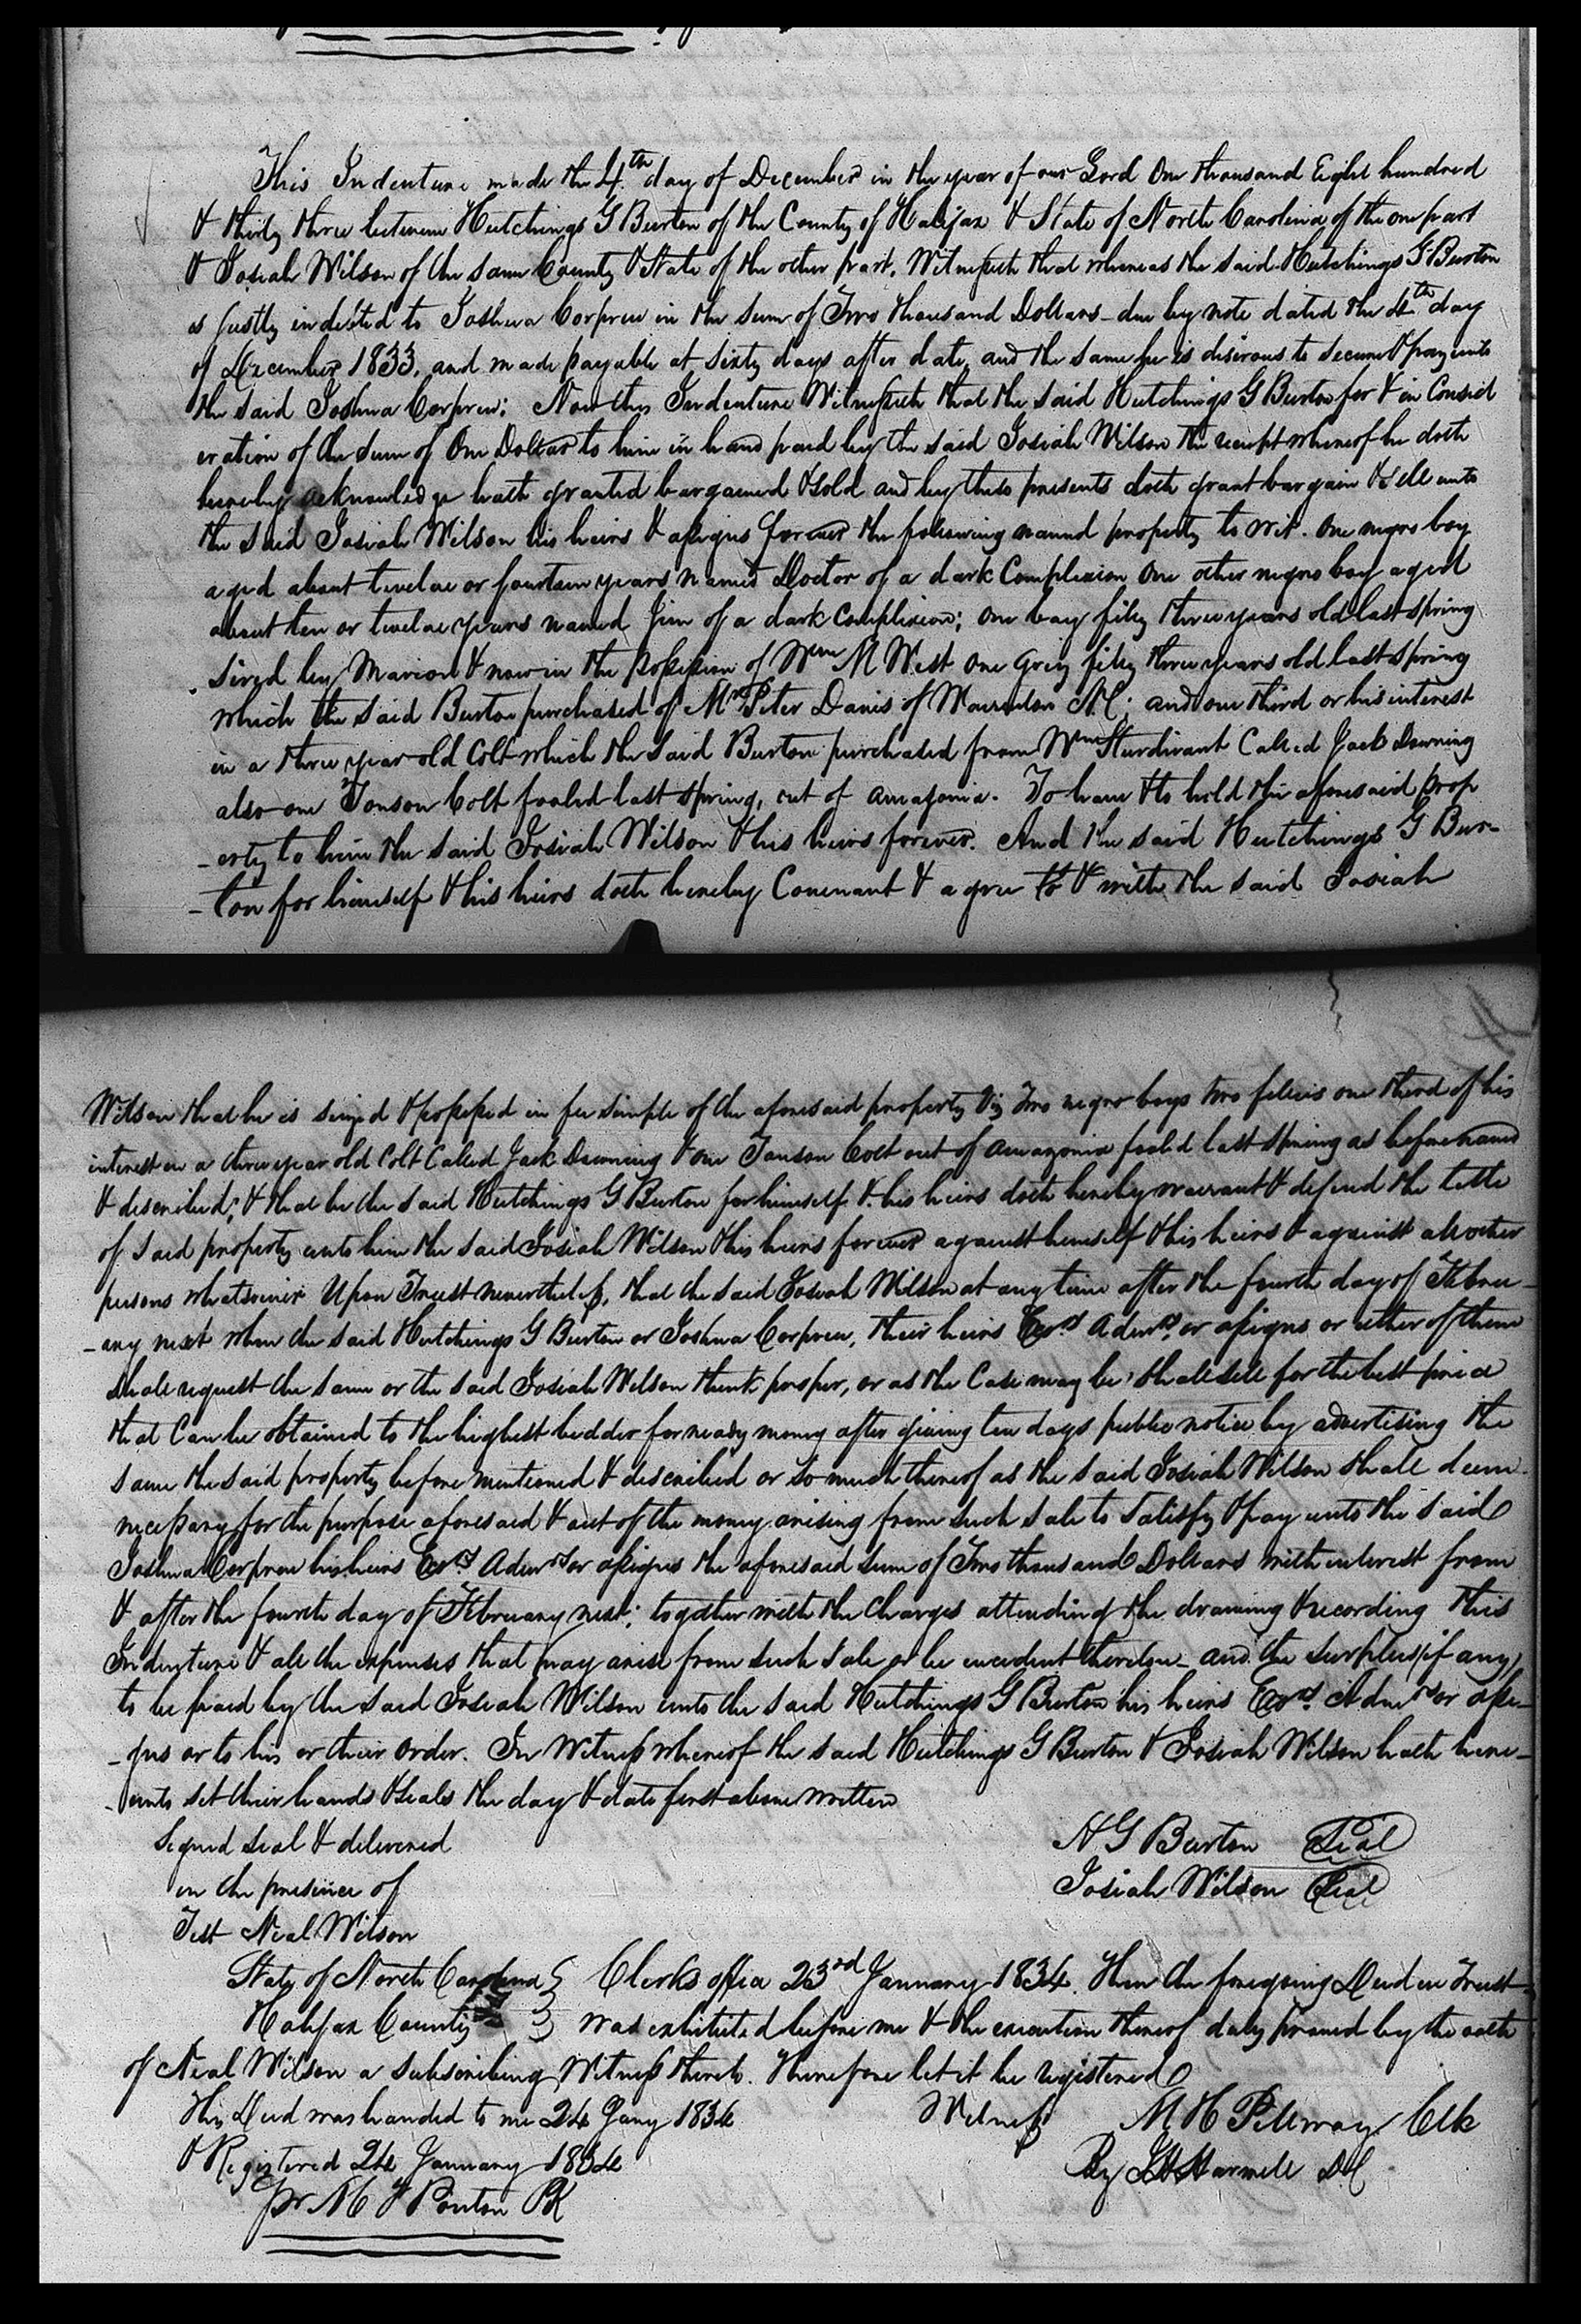 This Indenture made the 4th day of December in the year of our Lord One thousand Eight hundred
& thirty three between Hutchings G Burton of the County of Halifax & State of North Carolina of the one part
& Josiah Wilson of the same County & State of the other part. Witnesseth that whereas the said Hutchings G Burton
is justly indebted to Joshua Corprew in the sum of Two thousand Dollars - due by note dated the 4th day
of December 1833, and made payable at sixty days after date, and the same he is desirous to secure & pay unto
the said Joshua Corprew: Now this Indenture Witnesseth that the said Hutchings G Burton for & in Consid
eration of the sum of One Dollar to him in hand paid by the said Josiah Wilson the receipt whereof he doth
hereby acknowledge hath granted bargained & sold and by these presents doth grant bargain & sell unto
the said Josiah Wilson his heirs & assigns forever the following named property to wit. One negro boy
aged about twelve or fourteen years named Doctor of a dark Complexion One other negro boy aged
about ten or twelve years named Jim of a dark Complexion; one bay filly three years old last spring
sired by Marion & now in the possession of Wm M West one Grey filly three years old last spring
which the said Burton purchased of Mr Peter Davis of Warrenton N.C; and one third or his interest
in a three year old Colt which the said Burton purchased from Wm Sturdivant Called Jack Downing
also one Tonson Colt foaled last spring, out of Amazonia. To have & to hold the aforesaid prop
-erty to him the said Josiah Wilson & his heirs forever. And the said Hutchings G Bur-
-ton for himself & his heirs doth hereby Covenant & agree to & with the said Josiah
Wilson that he is seized & possessed in fee simple of the aforesaid property Viz Two negro boys two fillies one third of his
interest in a three year old Colt Called Jack Downing & one Tonson Colt out of Amazonia foaled last Spring as before named
& described; & that he the said Hutchings G Burton for himself & his heirs doth hereby warrant & defend the title
of said property unto him the said Josiah Wilson & his heirs forever against himself & his heirs & against all other
persons whatsoever Upon Trust nevertheless, that the said Josiah Wilson at any time after the fourth day of Febru-
-ary next when the said Hutchings G Burton or Joshua Corprew, their heirs Exrs Admrs or assigns or either of them
shall request the same or the said Josiah Wilson think proper, or as the Case may be, shall sell for the best price
that Can be obtained to the highest bidder for ready money after giving ten days public notice by advertising the
same the said property before mentioned & described or so much thereof as the said Josiah Wilson shall deem
necessary for the purpose aforesaid & out of the money arising from such sale to satisfy & pay unto the said
Joshua Corprew his heirs Exrs Admrs or assigns the aforesaid sum of Two thousand Dollars with interest from
& after the fourth day of February next; together with the Charges attending the drawing & recording this
Indenture & all the expenses that may arise from such sale or be incident thereto - and the surplus (if any)
to be paid by the said Josiah Wilson unto the said Hutchings G Burton his heirs Exrs Admrs or assi-
-gns or to his or their order. In Witness whereof the said Hutchings G Burton & Josiah Wilson hath here-
-unto set their hands & seals the day & date first above written
Signed seal & delivered
in the presence of
Test Neal Wilson
H G Burton Seal
Josiah Wilson Seal
State of North Carolina } Clerks office 23rd January 1834. Then the foregoing Deed in Trust
Halifax County } was exhibited before me & the execution thereof duly proved by the oath
of Neal Wilson a subscribing Witness thereto. Therefore let it be registered
Witness M H Pettway Clk
By J H Harwell D.C.
This Deed was handed to me 24 Jany 1834
& Registered 24 January 1834
pr M T Ponton PR